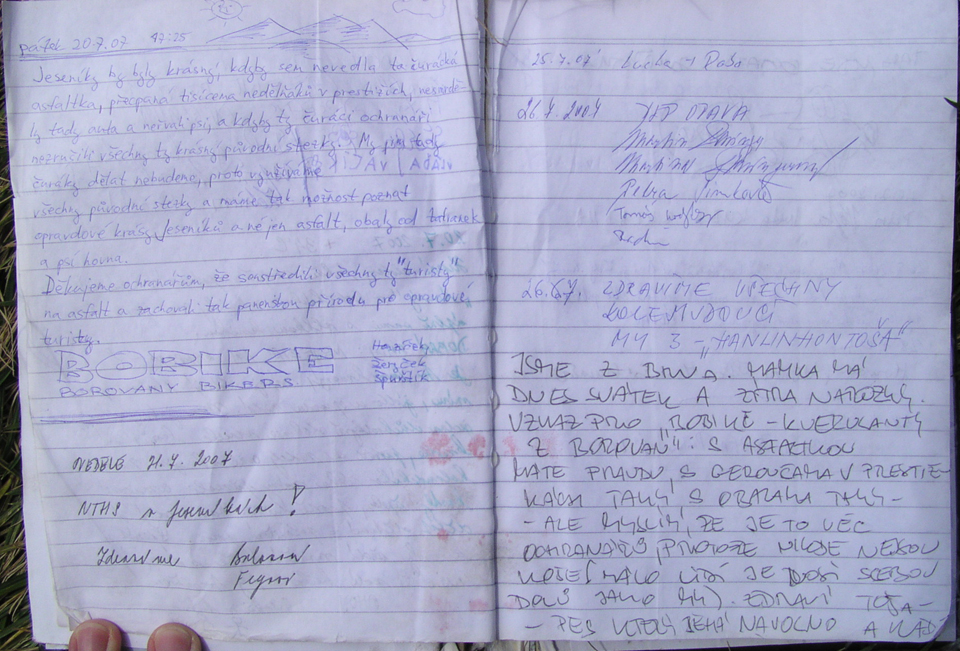 pátek 20.7.07 17:25
Jeseníky by byly krásný, kdyby sem nevedla ta čurácká
asfaltka, přecpaná tisícema nedělňáků v prestižích, nesmrdě-
ly tady auta a neřvali psi, a kdyby ty čuráci ochranáři
nezrušili všechny ty krásný původní stezky. My jim tady
čuráky dělat nebudeme, proto využíváme
všechny původní stezky a máme tak možnost poznat
opravdové krásy Jeseníků a né jen asfalt, obaly od tatranek
a psí hovna.
Děkujeme ochranářům, že soustředili všechny ty "turisty"
na asfalt a zachovali tak panenskou přírodu pro opravdové
turisty.
BOBIKE
BOROVANY BIKERS
Špuntík
NEDĚLE 21.7.2007
NTHS v Jeseníkách!
25.7.07 Lucka + Páša
26.7.2007 OTAVA
Petra
Tomáš
26.07. ZDRAVÍME VŠECHNY
KOLEMJDOUCÍ
MY 3 - „HANLINHONTOŠA"
JSME Z BRNA. MAMKA MÁ
DNES SVÁTEK A ZÍTRA NAROZKY.
VZKAZ PRO „BOBIKE - KVERULANTY
Z BOROVAN": S ASFALTKOU
MÁTE PRAVDU, S V PRESTIŽ-
KÁCH TAKY, S OBALAMA TAKY -
- ALE MYSLÍM, ŽE JE TO VĚC
OCHRANÁŘŮ, PROTOŽE NIKDE NEJSOU
KOŠE (MÁLO LIDÍ JE NOSÍ SEBOU
DOLŮ JAKO MY). ZDRAVÍ TOŠA -
- PES KTERÝ BĚHÁ NAVOLNO A